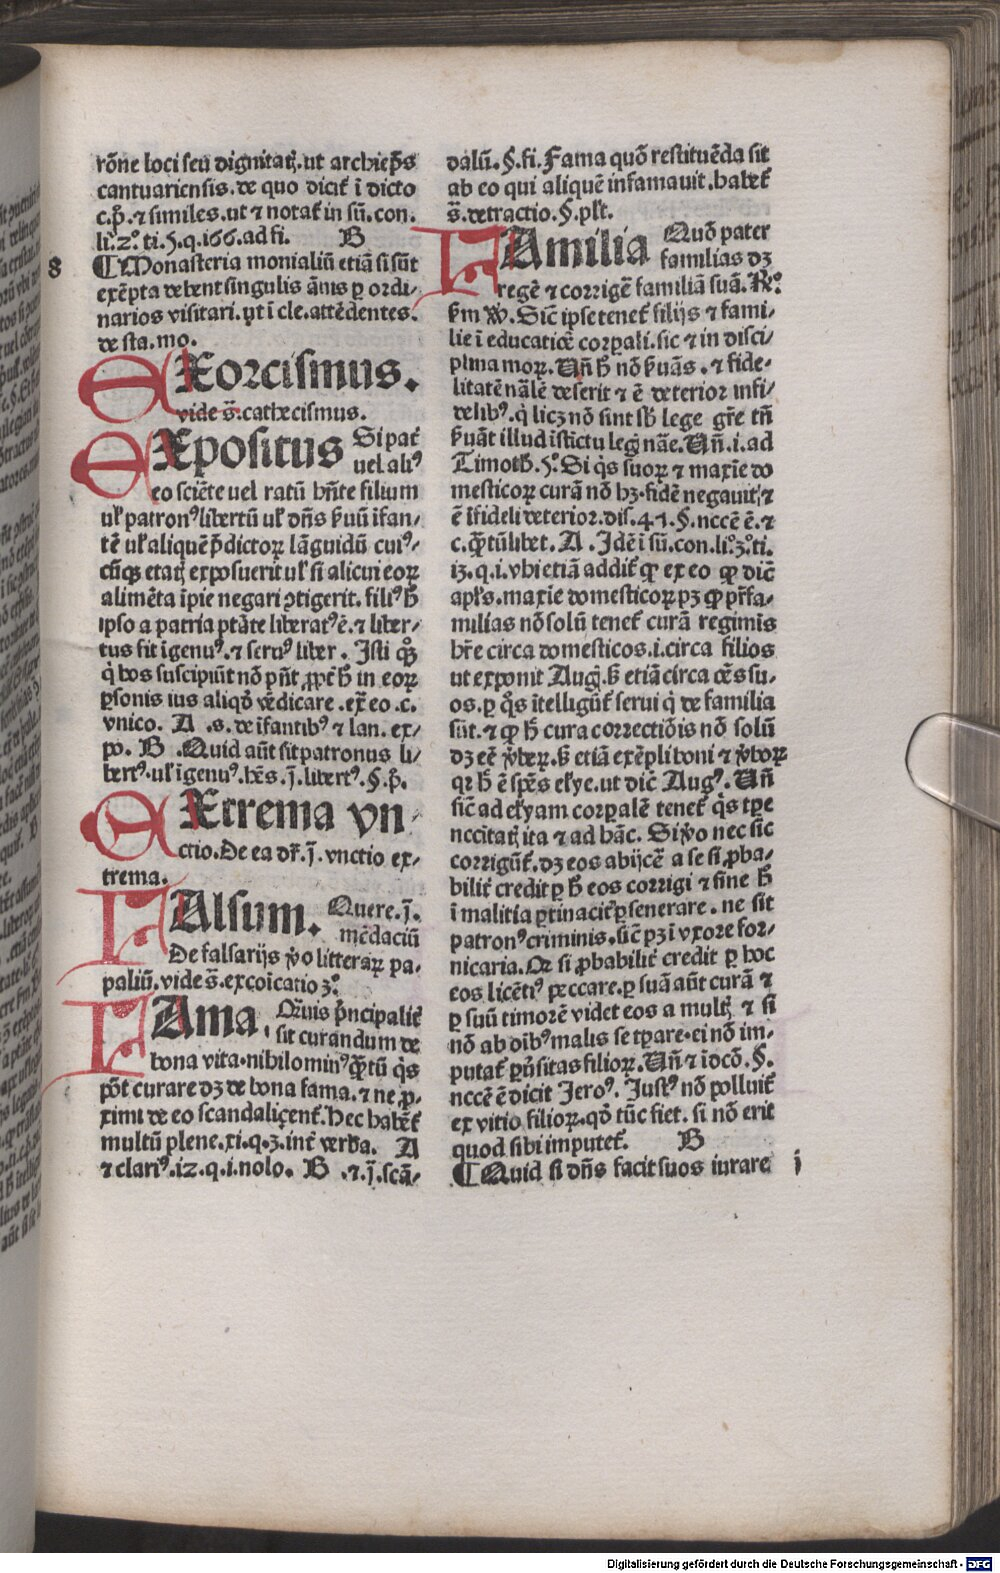 rõne loci seu dignitatꝭ. ut archiep̄s
cantuariensis. de quo dicit̃ ĩ dicto
c. p̃. ⁊ similes. ut ⁊ notat̃ in sũ. con.
li. 2º. ti. 5. q. 166. ad fi. B
8
¶ Monasteria monialiũ etiã si sũt
exẽpta debent singulis ãnis ꝑ ordi-
narios visitari. ut ĩ cle. attẽdentes.
de sta. mo.
EXorcismus.
vide s̃. cathecismus.
EXpositus Si pat̃
uel aliꝰ
eo sciẽte uel ratũ hñte filium
ul̃ patronꝰ libertũ ul̃ dñs ẜuũ ĩfan-
tẽ ul̃ aliquẽ p̃dictoꝝ lãguidũ cuiꝰ-
cũqꝫ etatꝭ exposuerit ul̃ si alicui eoꝝ
alimẽta ĩpie negari ꝯtigerit. filiꝰ h̃
ipso a patria ptãte liberatꝰ ẽ. ⁊ liber-
tus fit ĩgenuꝰ. ⁊ seruꝰ liber. Isti qͦꝫ
q̇ hos suscipiũt nõ pñt ꝓpt̃ h̃ in eoꝝ
ꝑsonis ius aliqͦ vẽdicare. ex̃ eo. c.
vnico. A .s. de ĩfantibꝰ ⁊ lan. ex-
po. B .Quid aũt sit patronus li-
bertꝰ. ul̃ ĩgenuꝰ. hẽs. j̃. libertꝰ. §. p̃.
EXtrema vn-
ctio. De ea dr̃. j̃. vnctio ex-
trema.
FAlsum. Quere. j̃.
mẽdaciũ
De falsarijs v̾o litteraꝝ pa-
paliũ. vide s̃. excõicatio 3ͣ.
FAma. Qͣuis p̃ncipalit̃
sit curandum de
bona vita. nihilominꝰ q̃tũ qͥs
põt curare dꝫ de bona fama. ⁊ ne ꝓ-
ximi de eo scandaliçent̃. Hec habẽt̃
multũ plene. xi. q. 3. int̃ verba. A
⁊ clariꝰ. 12. q. i. nolo. B .⁊. j̃. scã-
dalũ. §. fi. Fama quõ restituẽda sit
ab eo qui aliquẽ infamauit. habet̃
s̃. detractio. §. pl̃t.
FAmilia Quõ pater
familias dꝫ
regẽ ⁊ corrigẽ familiã suã. Rͦ.
ẜm W̃. Sic̃ ipse tenet̃ filijs ⁊ fami-
lie ĩ educatiõe corꝑali. sic ⁊ in disci-
plina moꝝ. Uñ h̃ nõ ẜuãs. ⁊ fide-
litatẽ nãlẽ deserit ⁊ ẽ deterior infi-
delibꝰ. q̇ licꝫ nõ sint sb̃ lege gr̃e tñ
ẜuãt illud ĩstictu legꝭ nãe. Uñ. i. ad
Timoth̃. 5º. Si qͥs suoꝝ ⁊ maxĩe do
mesticoꝝ curã nõ hꝫ. fidẽ negauit, ⁊
ẽ ĩfideli deterior. dis. 47. §. nccẽ ẽ. ⁊
c. q̃tũlibet. A .Idẽ ĩ sũ. con. liº. 3º. ti.
12. q. i. vbi etiã addit̃ ꝙ ex eo ꝙ dic̃
apl̃s. maxĩe domesticoꝝ pꝫ ꝙ pr̃fa-
milias nõ solũ tenet̃ curã regimĩs
hr̃e circa domesticos. i. circa filios
ut exponit Augꝭ. ẜ etiã circa oẽs su-
os. ꝑ qͦs ĩtelligũt̃ serui q̇ de familia
sũt. ⁊ ꝙ h̃ cura correctiõis nõ solũ
dꝫ eẽ v̾beꝝ. ẜ etiã exẽpli boni ⁊ v̾boꝝ
qꝛ h̃ ẽ sp̃es el̃ye. ut dic̃ Augꝰ. Uñ
sic̃ ad el̃yam corꝑalẽ tenet̃ qͥs tp̃e
nccitatꝭ ita ⁊ ad hãc. Si v̾o nec sic̃
corrigũt̃. dꝫ eos abijcẽ a se si ꝓba-
bilit̃ credit ꝑ h̃ eos corrigi ⁊ sine h̃
ĩ malitia ꝑtinacit̃ ꝑseuerare. ne sit
patronꝰ criminis. sic̃ pꝫ ĩ vxore for-
nicaria. Qꝛ si ꝓbabilit̃ credit ꝑ hoc
eos licẽtiꝰ peccare. ꝑ suã aũt curã ⁊
ꝑ suũ timorẽ videt eos a multꝭ ⁊ si
nõ ab oĩbꝰ malis se tꝑare. ei nõ im-
putat̃ ꝑũsitas filioꝝ. Uñ ⁊ ĩ ocõ. §.
nccẽ ẽ dicit Jeroꝰ. Iustꝰ nõ polluit̃
ex vitio filioꝝ. qõ tũc fiet. si nõ erit
quod sibi imputet̃. B
¶ Quid si dñs facit suos iurare i
Digitalisierung gefördert durch die Deutsche Forschungsgemeinschaft - DFG